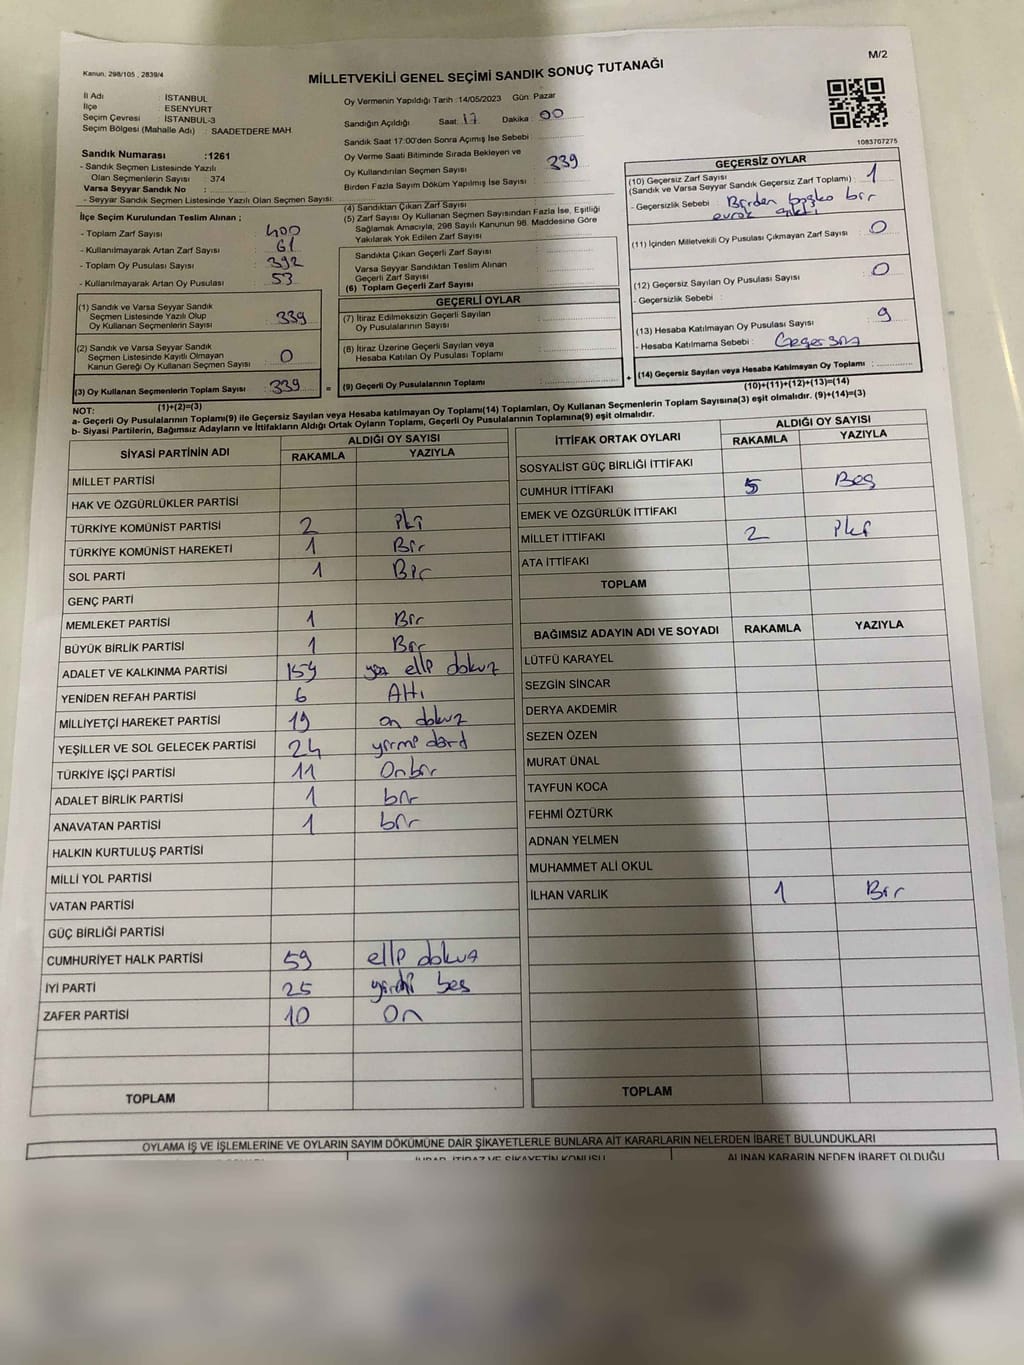 Kanun: 298/105 , 2839/4
M/2
MİLLETVEKİLİ GENEL SEÇİMİ SANDIK SONUÇ TUTANAĞI
İl Adı : İSTANBUL
İlçe : ESENYURT
Seçim Çevresi : İSTANBUL-3
Seçim Bölgesi (Mahalle Adı) : SAADETDERE MAH.
Oy Vermenin Yapıldığı Tarih :14/05/2023 Gün: Pazar
Sandığın Açıldığı Saat: 17 Dakika: 00
Sandık Saat 17:00'den Sonra Açımış İse Sebebi :
Oy Verme Saati Bitiminde Sırada Bekleyen ve
Oy Kullandırılan Seçmen Sayısı : 339
Birden Fazla Sayım Döküm Yapılmış İse Sayısı :
1083707275
Sandık Numarası :1261
- Sandık Seçmen Listesinde Yazılı
Olan Seçmenlerin Sayısı : 374
Varsa Seyyar Sandık No :
- Seyyar Sandık Seçmen Listesinde Yazılı Olan Seçmen Sayısı:
İlçe Seçim Kurulundan Teslim Alınan ;
- Toplam Zarf Sayısı : 400
- Kullanılmayarak Artan Zarf Sayısı : 61
- Toplam Oy Pusulası Sayısı : 392
- Kullanılmayarak Artan Oy Pusulası : 53
(1) Sandık ve Varsa Seyyar Sandık
Seçmen Listesinde Yazılı Olup
Oy Kullanan Seçmenlerin Sayısı : 339
(2) Sandık ve Varsa Seyyar Sandık
Seçmen Listesinde Kayıtlı Olmayan
Kanun Gereği Oy Kullanan Seçmen Sayısı : 0
(3) Oy Kullanan Seçmenlerin Toplam Sayısı : 339
(1)+(2)=(3)
(4) Sandıktan Çıkan Zarf Sayısı
(5) Zarf Sayısı Oy Kullanan Seçmen Sayısından Fazla İse, Eşitliği
Sağlamak Amacıyla, 298 Sayılı Kanunun 98. Maddesine Göre
Yakılarak Yok Edilen Zarf Sayısı :
Sandıkta Çıkan Geçerli Zarf Sayısı :
Varsa Seyyar Sandıktan Teslim Alınan
Geçerli Zarf Sayısı :
(6) Toplam Geçerli Zarf Sayısı :
GEÇERLİ OYLAR
(7) İtiraz Edilmeksizin Geçerli Sayılan
Oy Pusulalarının Sayısı :
(8) İtiraz Üzerine Geçerli Sayılan veya
Hesaba Katılan Oy Pusulası Toplamı :
= (9) Geçerli Oy Pusulalarının Toplamı :
GEÇERSİZ OYLAR
(10) Geçersiz Zarf Sayısı : 1
(Sandık ve Varsa Seyyar Sandık Geçersiz Zarf Toplamı)
- Geçersizlik Sebebi : Birden başka bir
evrak çıktı
(11) İçinden Milletvekili Oy Pusulası Çıkmayan Zarf Sayısı : 0
(12) Geçersiz Sayılan Oy Pusulası Sayısı : 0
- Geçersizlik Sebebi :
(13) Hesaba Katılmayan Oy Pusulası Sayısı : 9
- Hesaba Katılmama Sebebi : Geçersiz
+ (14) Geçersiz Sayılan veya Hesaba Katılmayan Oy Toplamı :
(10)+(11)+(12)+(13)=(14)
NOT:
a- Geçerli Oy Pusulalarının Toplamı(9) ile Geçersiz Sayılan veya Hesaba katılmayan Oy Toplamı(14) Toplamları, Oy Kullanan Seçmenlerin Toplam Sayısına(3) eşit olmalıdır. (9)+(14)=(3)
b- Siyasi Partilerin, Bağımsız Adayların ve İttifakların Aldığı Ortak Oyların Toplamı, Geçerli Oy Pusulalarının Toplamına(9) eşit olmalıdır.
SİYASİ PARTİNİN ADI
ALDIĞI OY SAYISI
RAKAMLA YAZIYLA
MİLLET PARTİSİ
HAK VE ÖZGÜRLÜKLER PARTİSİ
TÜRKİYE KOMÜNİST PARTİSİ 2 İki
TÜRKİYE KOMÜNİST HAREKETİ 1 Bir
SOL PARTİ 1 Bir
GENÇ PARTİ
MEMLEKET PARTİSİ 1 Bir
BÜYÜK BİRLİK PARTİSİ 1 Bir
ADALET VE KALKINMA PARTİSİ 159 yüz elli dokuz
YENİDEN REFAH PARTİSİ 6 Altı
MİLLİYETÇİ HAREKET PARTİSİ 19 on dokuz
YEŞİLLER VE SOL GELECEK PARTİSİ 24 yirmi dört
TÜRKİYE İŞÇİ PARTİSİ 11 Onbir
ADALET BİRLİK PARTİSİ 1 bir
ANAVATAN PARTİSİ 1 bir
HALKIN KURTULUŞ PARTİSİ
MİLLİ YOL PARTİSİ
VATAN PARTİSİ
GÜÇ BİRLİĞİ PARTİSİ
CUMHURİYET HALK PARTİSİ 59 elli dokuz
İYİ PARTİ 25 yirmi beş
ZAFER PARTİSİ 10 On
TOPLAM
İTTİFAK ORTAK OYLARI
ALDIĞI OY SAYISI
RAKAMLA YAZIYLA
SOSYALİST GÜÇ BİRLİĞİ İTTİFAKI
CUMHUR İTTİFAKI 5 Beş
EMEK VE ÖZGÜRLÜK İTTİFAKI
MİLLET İTTİFAKI 2 İki
ATA İTTİFAKI
TOPLAM
BAĞIMSIZ ADAYIN ADI VE SOYADI RAKAMLA YAZIYLA
LÜTFÜ KARAYEL
SEZGİN SİNCAR
DERYA AKDEMİR
SEZEN ÖZEN
MURAT ÜNAL
TAYFUN KOCA
FEHMİ ÖZTÜRK
ADNAN YELMEN
MUHAMMET ALİ OKUL
İLHAN VARLIK 1 Bir
TOPLAM
OYLAMA İŞ VE İŞLEMLERİNE VE OYLARIN SAYIM DÖKÜMÜNE DAİR ŞİKAYETLERLE BUNLARA AİT KARARLARIN NELERDEN İBARET BULUNDUKLARI
İHBAR, İTİRAZ VE ŞİKAYETİN KONUSU
ALINAN KARARIN NEDEN İBARET OLDUĞU